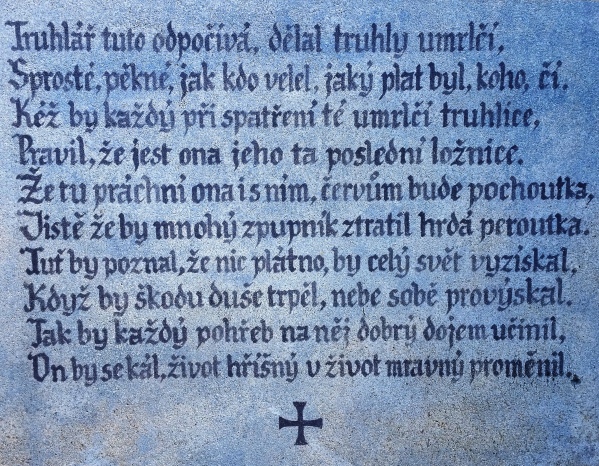 Truhlář tuto odpočívá, dělal truhly umrlčí,
Sprosté, pěkné, jak kdo velel, jaký plat byl, koho, čí.
Kéž by každý při spatření té umrlčí truhlice,
Pravil, že jest ona jeho ta poslední ložnice.
Že tu práchní ona i s ním, červům bude pochoutka,
Jistě že by mnohý zpupník ztratil hrdá peroutka.
Tuť by poznal, že nic plátno, by celý svět vyzískal,
Když by škodu duše trpěl, nebe sobě provýskal.
Tak by každý pohřeb na něj dobrý dojem učinil,
On by se kál, život hříšný v život mravný proměnil.